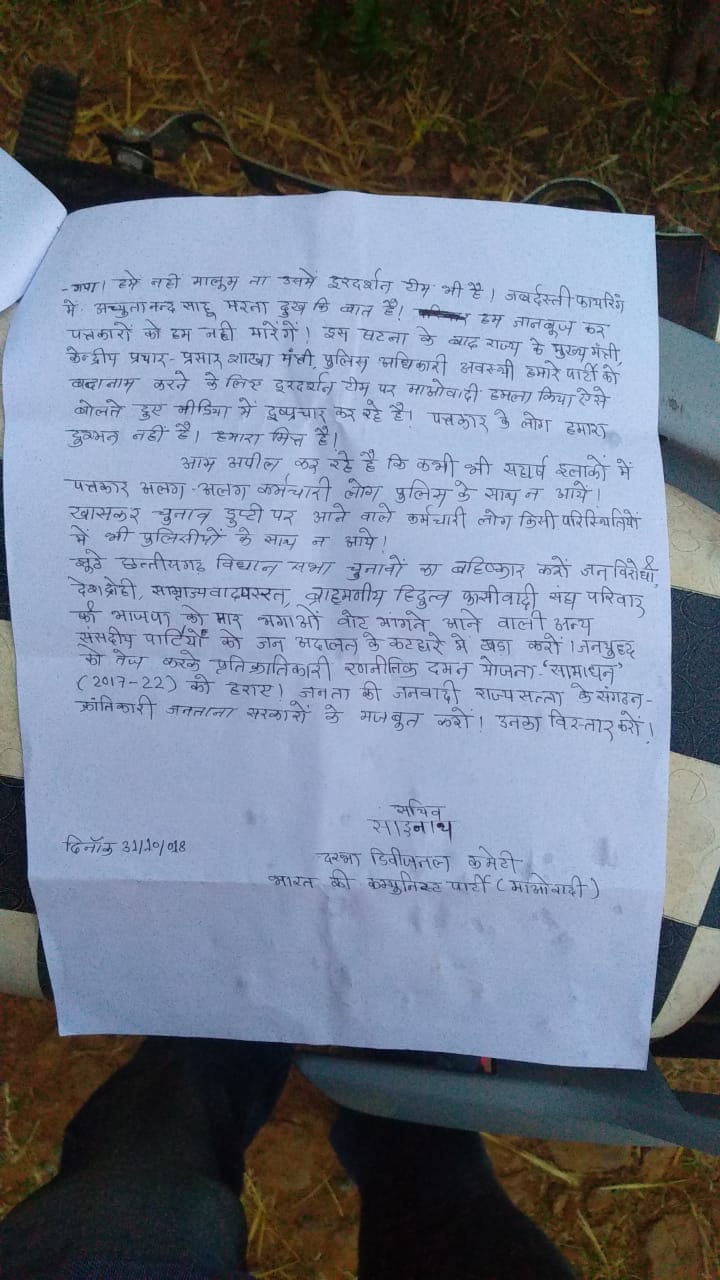 -गया। हमें नहीं मालुम ता उसमें दूरदर्शन टीम भी है। जबर्दस्ती फायरिंग
में अच्युतानन्द साहू मरना दुख कि बात है। हम जानबुज कर
पत्तकारों को हम नही मारेगें। इस घटना के बाद राज्य के मुख्य मंत्री,
केन्द्रीय प्रचार-प्रसार शाखा मंत्री, पुलिस अधिकारी अवस्थी हमारे पार्टी को
बदानाम करने के लिए दूरदर्शन टीम पर माओवादी हमला किया ऐसे
बोलते हुए मीडिया में दुष्प्रचार कर रहे है। पत्तकार के लोग हमारा
दुश्मन नहीं है। हमारा मित्त है।
आम अपील कर रहे है कि कभी भी सघर्ष इलाकों में
पत्तकार अलग-अलग कर्मचारी लोग पुलिस के साथ न आयें।
खासकर चुनाव डुप्टी पर आने वाले कर्मचारी लोग किसी परिस्थितियों
में भी पुलिसीयों के साथ न आये।
झूठे छत्तीसगढ़ विधान सभा चुनावों का बहिष्कार करों जन विरोधी,
देशद्रोही, साम्राज्यवादपरस्त, ब्राहमणीय हिदुत्व फासीवादी सघ परिवार
की भाजपा को मार भगाओं वोट मांगते आने वाली अन्य
संसदीय पार्टियों को जन अदालत के कटघरे में खडा करों। जनयुद्द
को तेज करके प्रतिक्रातिकारी रणनीतिक दमन योजना-'सामाधन'
(2017-22) को हराए। जनता की जनवादी राज्य सत्ता के संगठन-
क्रांतिकारी जनताना सरकारों के मजबुत करों! उनका विस्तार करों!
सचिव
साइनाथ
दिनाँक 31/10/018
दरभा डिवीजनल कमेटी
भारत की कम्युनिस्ट पार्टी (माओवादी)